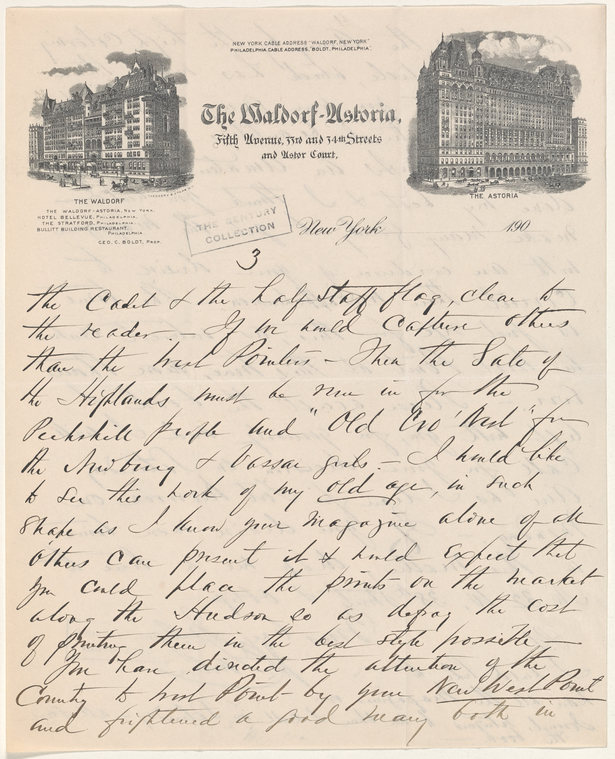 NEW YORK CABLE ADDRESS "WALDORF, NEW YORK"
PHILADELPHIA CABLE ADDRESS, "BOLDT, PHILADELPHIA",
The Waldorf-Astoria,
Fifth Avenue, 33rd and 34th Streets
and Astor Court,
THE WALDORF
THE WALDORF-ASTORIA, NEW YORK.
HOTEL BELLEVUE, PHILADELPHIA.
THE STRATFORD, PHILADELPHIA.
BULLITT BUILDING RESTAURANT,
PHILADELPHIA.
GEO. C. BOLDT, PROP.
THE ASTORIA
THE CENTURY
COLLECTION
New York 190
3
the Cadet & the half staff flag, clear to
the reader. - If we would capture others
than the West Pointers - Then the Gate of
the Highlands must be run in for the
Peekskill people and "Old Cro' Nest" for
the Newburg & Vassar girls. - I would like
to see this work of my old age, in such
shape as I know your magazine alone of all
others can present it & would expect that
you could place the prints on the market
along the Hudson so as defray the cost
of printing them in the best style possible -
You have directed the attention of the
Country to West Point by your New West Point
and frightened a good many both in